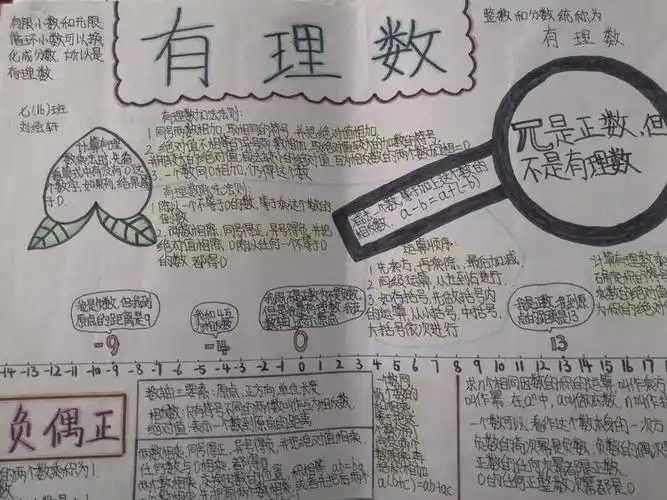 有限小数和无限
循环小数可以换
化成分数,所以是
有理数
有理数
整数和分数统称为
有理数
七(16)班
刘绘轩
计算有理
数乘法时,先看
看算式中有没有0这
个数字,如果有,结果等
于0.
有理数加法法则:
1.同号两数相加,取相同的符号,并把绝对值相加.
3.一个数同0相加,仍得这个数
有理数除法法则:
1.除以一个不等于0的数,等于乘这个数的
倒数
2.两数相除,同号得正,异号得负,并把
绝对值相除,0除以任何一个不等于0
的数,都得0
减去一个数,等于加上这个数的
相反数. a-b=a+(-b)
π是正数,但
不是有理数
运算顺序:
1.先乘方,再乘除,最后加减.
2.同级运算,从左到右进行.
3.如有括号,先做括号内
的运算,从小括号,中括号,
大括号依次进行
我是负数,但我到
原点的距离是9
-9
-4
0
我是正数,我到原
点的距离是13
13
-14 -13 -12 -11 -10 -9 -8 -7 -6 -5 -4 -3 -2 -1 0 1 2 3 4 5 6 7 8 9 10 11 12 13 14 15 16 17
负偶正
的两个数乘积为1.
数轴三要素:原点,正方向,单位长度
相反数:只有符号不同的两个数叫作互为相反数
绝对值:表示一个数到原点的距离
两数相乘,同号得正,异号得负,并把绝对值相乘
任何数与0相乘,都得0
a(b+c)=ab+ac
求n个相同因数的积的运算,叫作乘方
叫作幂,在aⁿ中,a叫做底数,n叫作
一个数可以看作这个数本身的一次方
负数的奇次幂是负数,负数的偶次
正数的任何次幂都是正数.
0的任何正整数次幂都是0.